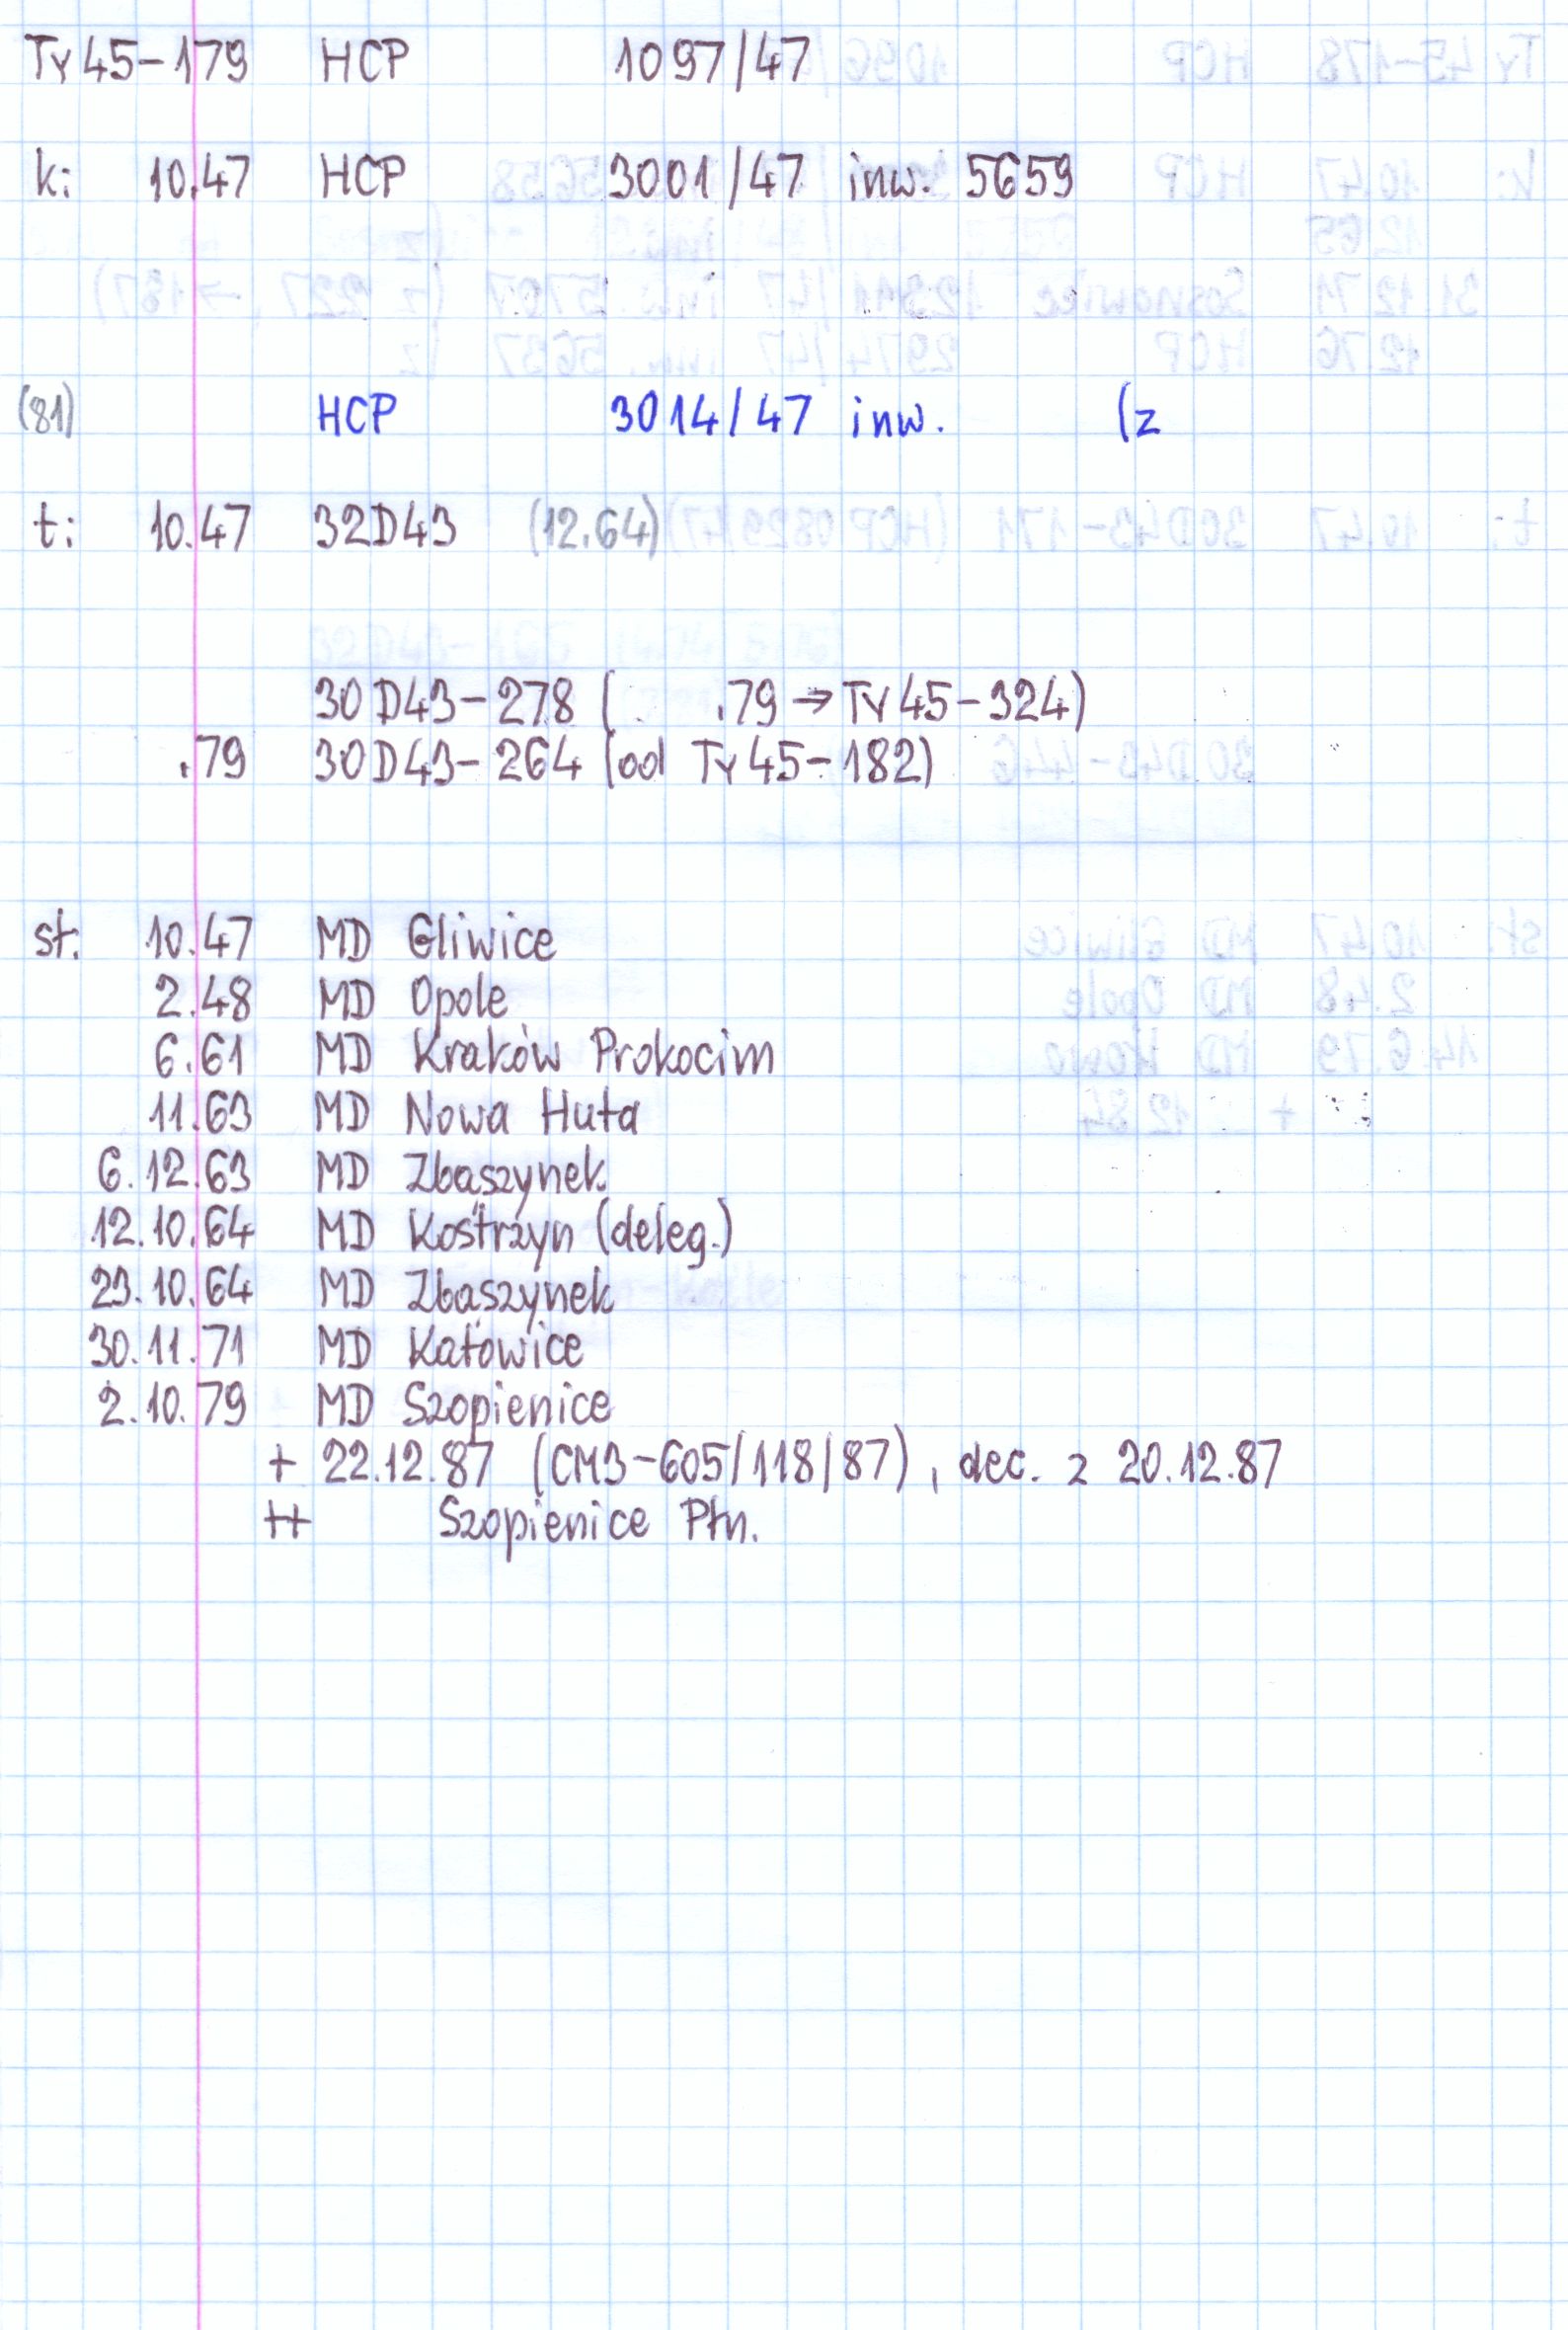 Ty45-179 HCP 1097/47
k: 10.47 HCP 3001/47 inw. 5659
(81) HCP 3014/47 inw. (z
t: 10.47 32D43 (12.64)
30D43-278 ( .79 → Ty45-324)
.79 30D43-264 (od Ty45-182)
st. 10.47 MD Gliwice
2.48 MD Opole
6.61 MD Kraków Prokocim
11.63 MD Nowa Huta
6.12.63 MD Zbąszynek
12.10.64 MD Kostrzyn (deleg.)
23.10.64 MD Zbąszynek
30.11.71 MD Katowice
2.10.79 MD Szopienice
+ 22.12.87 (CM3-605/118/87), dec. z 20.12.87
++ Szopienice Płn.